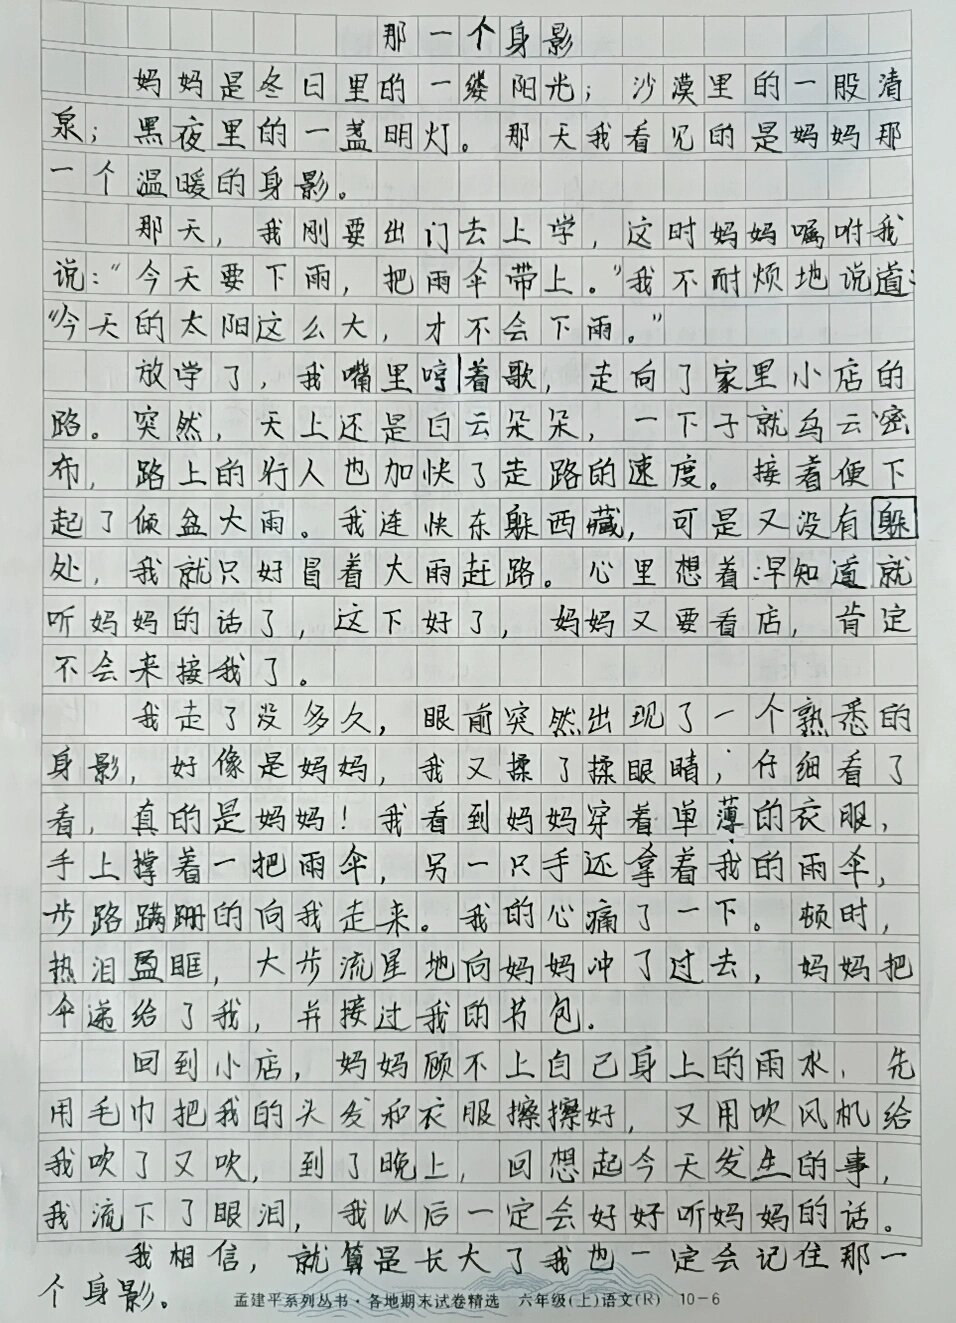 那一个身影
妈妈是冬日里的一缕阳光；沙漠里的一股清
泉；黑夜里的一盏明灯。那天我看见的是妈妈那
一个温暖的身影。
那天，我刚要出门去上学，这时妈妈嘱咐我
说：“今天要下雨，把雨伞带上。”我不耐烦地说道：
“今天的太阳这么大，才不会下雨。”
放学了，我嘴里哼着歌，走向了家里小店的
路。突然，天上还是白云朵朵，一下子就乌云密
布，路上的行人也加快了走路的速度。接着便下
起了倾盆大雨。我连快东躲西藏，可是又没有躲
处，我就只好冒着大雨赶路。心里想着：早知道就
听妈妈的话了，这下好了，妈妈又要看店，肯定
不会来接我了。
我走了没多久，眼前突然出现了一个熟悉的
身影，好像是妈妈，我又揉了揉眼睛，仔细看了
看，真的是妈妈！我看到妈妈穿着单薄的衣服，
手上撑着一把雨伞，另一只手还拿着我的雨伞，
步路蹒跚的向我走来。我的心痛了一下。顿时，
热泪盈眶，大步流星地向妈妈冲了过去，妈妈把
伞递给了我，并接过我的书包.
回到小店，妈妈顾不上自己身上的雨水，先
用毛巾把我的头发和衣服擦擦好，又用吹风机给
我吹了又吹，到了晚上，回想起今天发生的事，
我流下了眼泪，我以后一定会好好听妈妈的话。
我相信，就算是长大了我也一定会记住那一
个身影。
孟建平系列丛书·各地期末试卷精选 六年级(上)语文(R) 10-6